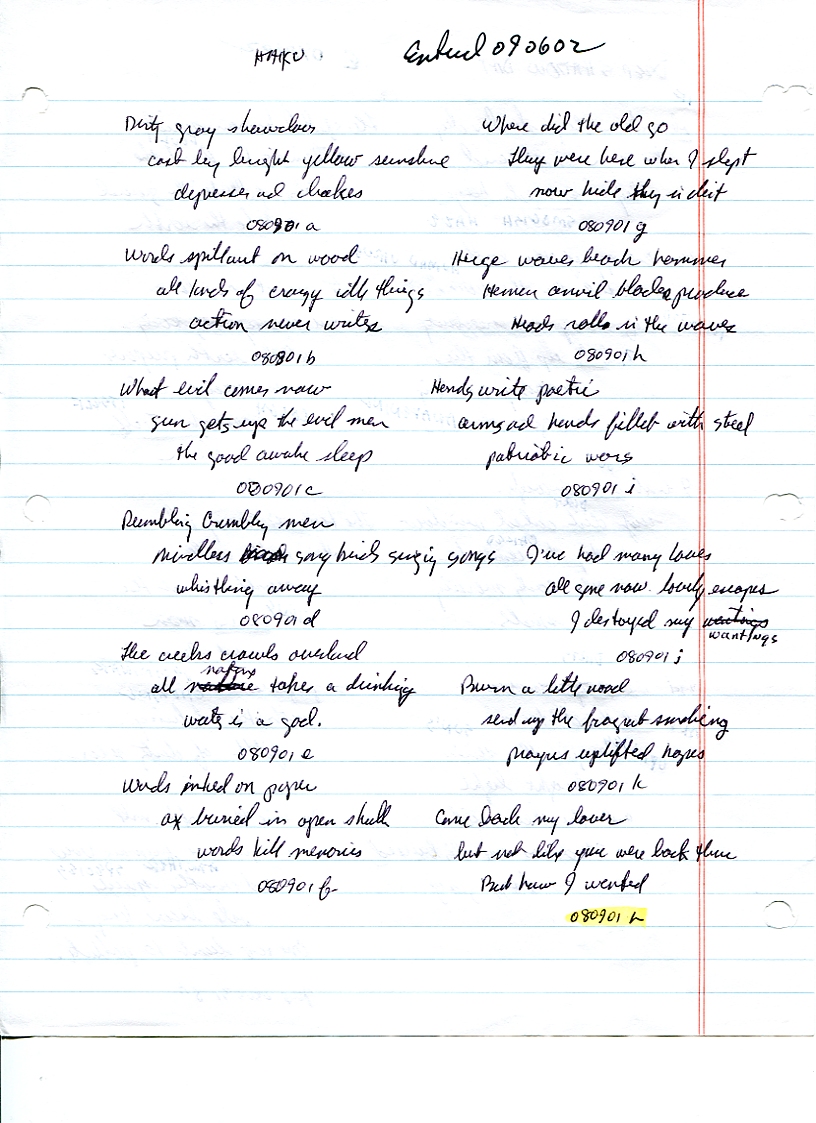 HAIKU
Entered 090602
Dirty gray
cast by bright yellow sunshine
depresses and chokes
080901 a
Words on wood
all kinds of crazy things
action never writes
080901 b
What evil comes now
sun gets up the evil men
the good awake sleep
080901 c
Rumbling Crumbly men
mindless song birds singing songs
whistling away
080901 d
The creeks crawls overland
all nature takes a drinking
water is a god.
080901 e
Words inked on paper
ax buried in open skull
words kill memories
080901 f
Where did the old go
They were here when I slept
now hide they in
080901 g
Huge waves beach hammer
anvil blocks produce
Heads rolls in the waves
080901 h
Hands write poetic
arms and hands fillet with steel
patriotic wars
080901 i
I've had many loves
all gone now lovely escapes
I destroyed my wantings
080901 j
Burn a little wood
send up the fragrant smoking
prayers uplifted hopes
080901 k
Come back my lover
but not like you were back then
But how I wanted
080901